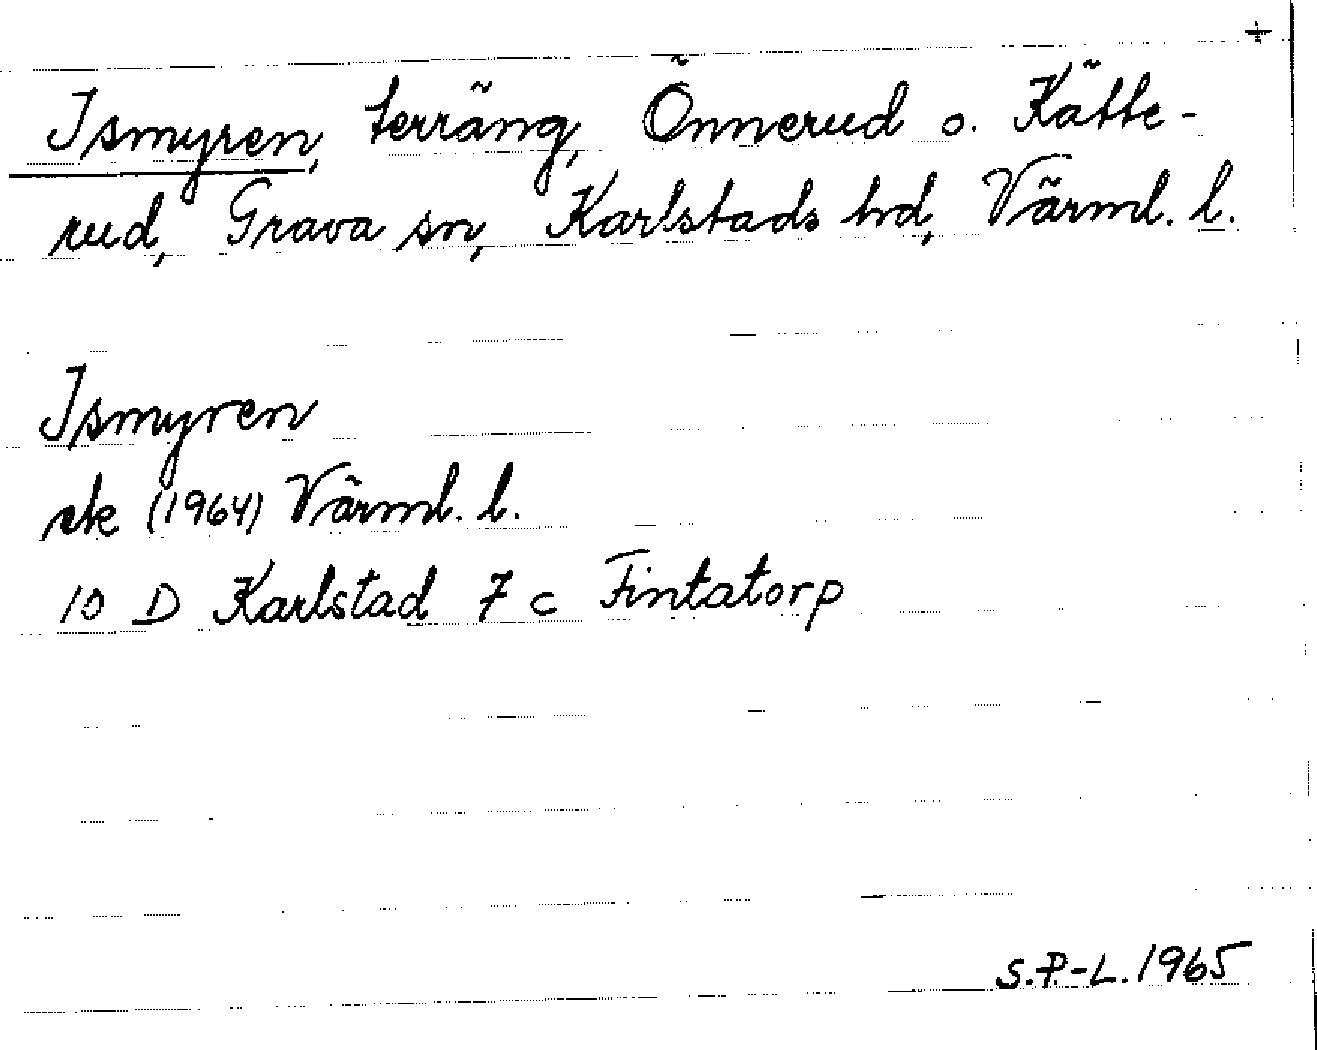 +
Ismyren, terräng, Önnerud o. Kätte-
rud, Grava sn, Karlstads hd, Värml. l.
Ismyren
ek (1964) Värml. l.
10 D Karlstad 7 c Fintatorp
S.P.-L. 1965